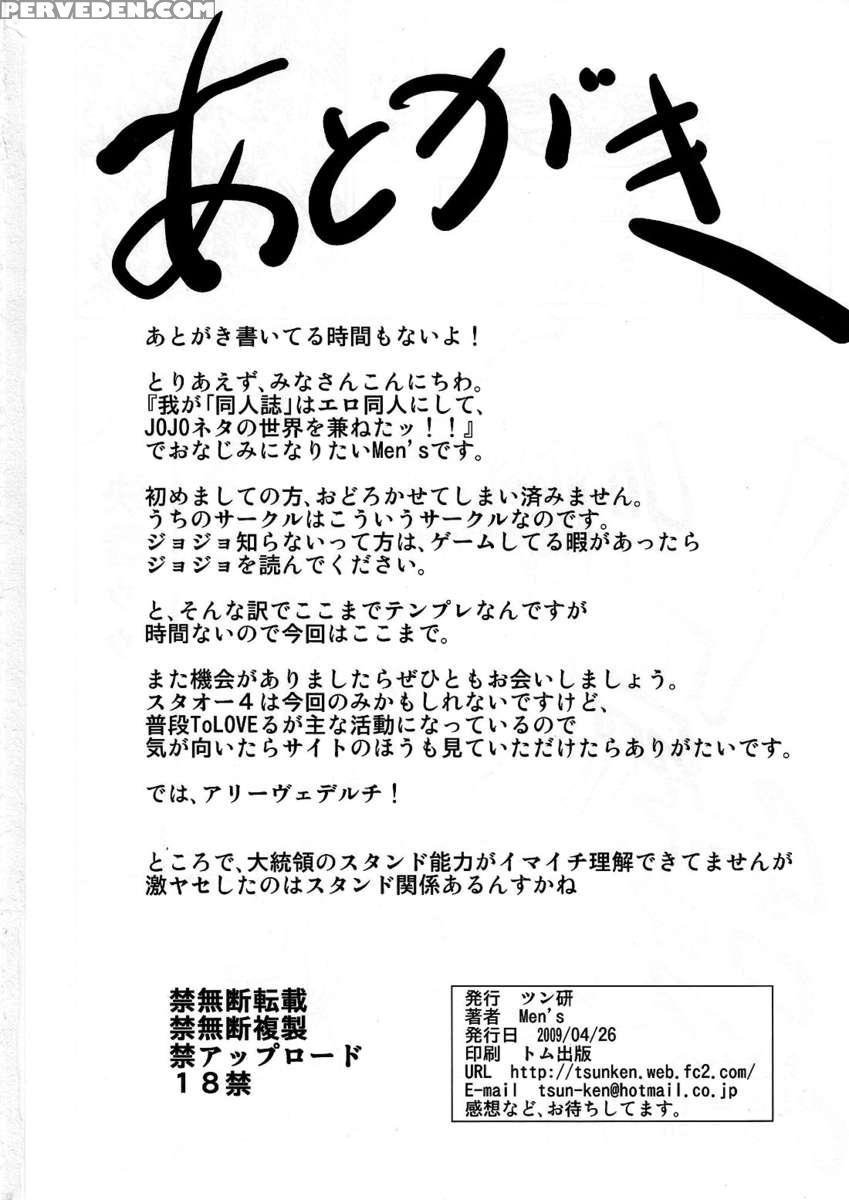 PERVEDEN.COM
あとがき
あとがき書いてる時間もないよ！
とりあえず、みなさんこんにちわ。
『我が「同人誌」はエロ同人にして、
JOJOネタの世界を兼ねたッ！！』
でおなじみになりたいMen'sです。
初めましての方、おどろかせてしまい済みません。
うちのサークルはこういうサークルなのです。
ジョジョ知らないって方は、ゲームしてる暇があったら
ジョジョを読んでください。
と、そんな訳でここまでテンプレなんですが
時間ないので今回はここまで。
また機会がありましたらぜひともお会いしましょう。
スタオー４は今回のみかもしれないですけど、
普段ToLOVEるが主な活動になっているので
気が向いたらサイトのほうも見ていただけたらありがたいです。
では、アリーヴェデルチ！
ところで、大統領のスタンド能力がイマイチ理解できてませんが
激ヤセしたのはスタンド関係あるんすかね
禁無断転載
禁無断複製
禁アップロード
１８禁
発行　ツン研
著者　Men's
発行日　2009/04/26
印刷　トム出版
URL　http://tsunken.web.fc2.com/
E-mail　tsun-ken@hotmail.co.jp
感想など、お待ちしてます。